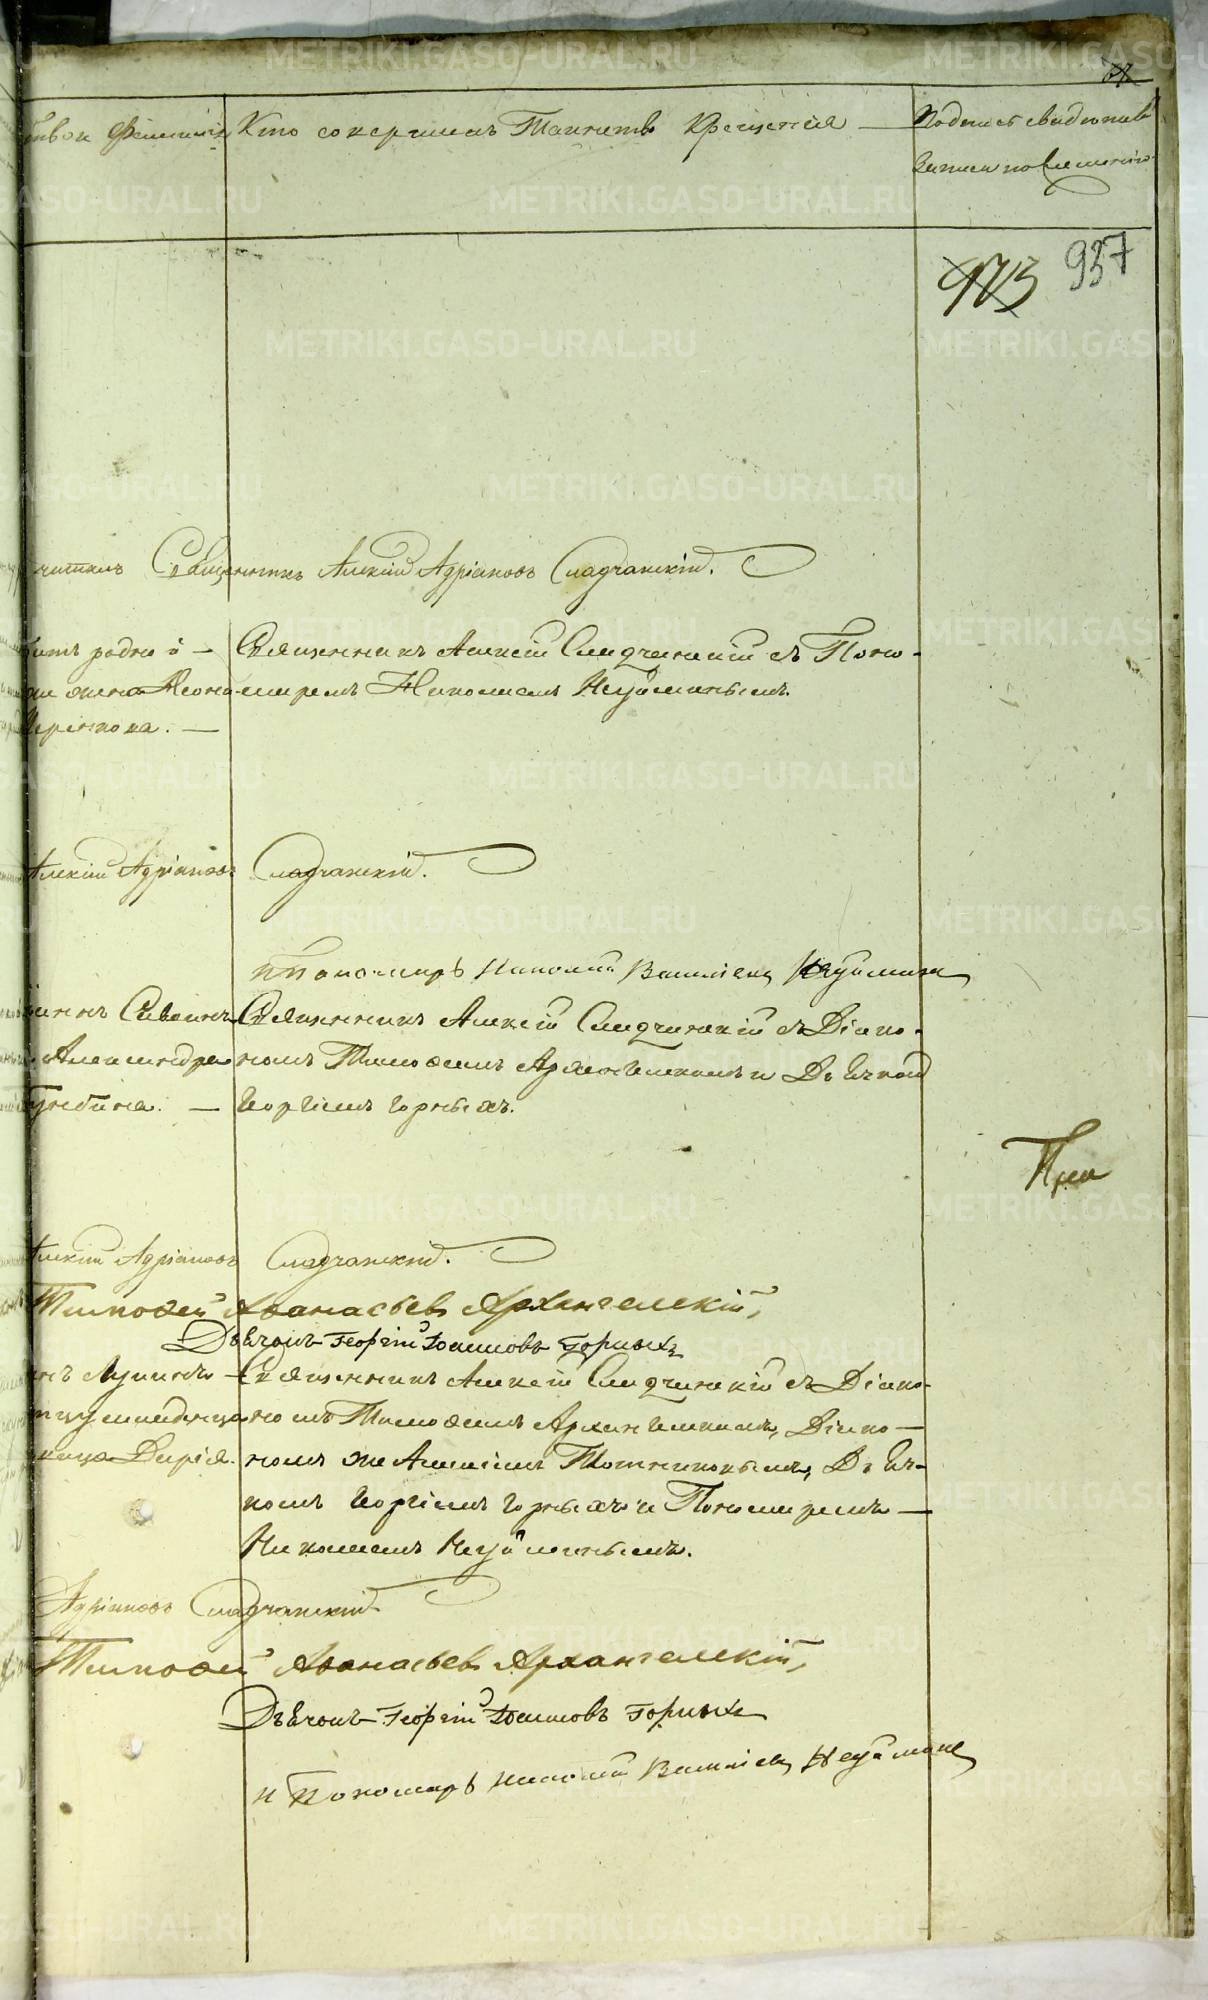 Кто совершалъ Таинство Крещенія — Подпись свидѣтелей
записи по желанію.
973 937
Священникъ Алексій Адріановъ Сладчанскій.
родной — Священникъ Алексій Сладчанскій съ Поно-
жена маремъ Николаемъ Неуйминымъ.
Алексій Адріановъ Сладчанскій.
и Пономарь Николай Васильевъ Неуйминъ
Священникъ Алексій Сладчанскій съ Діако-
Александра номъ Тимоѳеемъ Архангельскимъ и Дьячкомъ
— Георгіемъ Горныхъ.
При
Алексій Адріановъ Сладчанскій.
Тимоѳей Аѳанасьевъ Архангелскій,
Дьячокъ Георгій Іоанновъ Горныхъ
Священникъ Алексій Сладчанскій съ Діако-
номъ Тимоѳеемъ Архангельскимъ, Діако-
Дарія. номъ же Алексіемъ Плотниковымъ, Дьяч-
комъ Георгіемъ Горныхъ и Пономаремъ —
Николаемъ Неуйминымъ.
Адріановъ Сладчанскій.
Тимоѳей Аѳанасьевъ Архангелскій,
Дьячокъ Георгій Іоанновъ Горныхъ
и Пономарь Николай Васильевъ Неуйминъ
METRIKI.GASO-URAL.RU